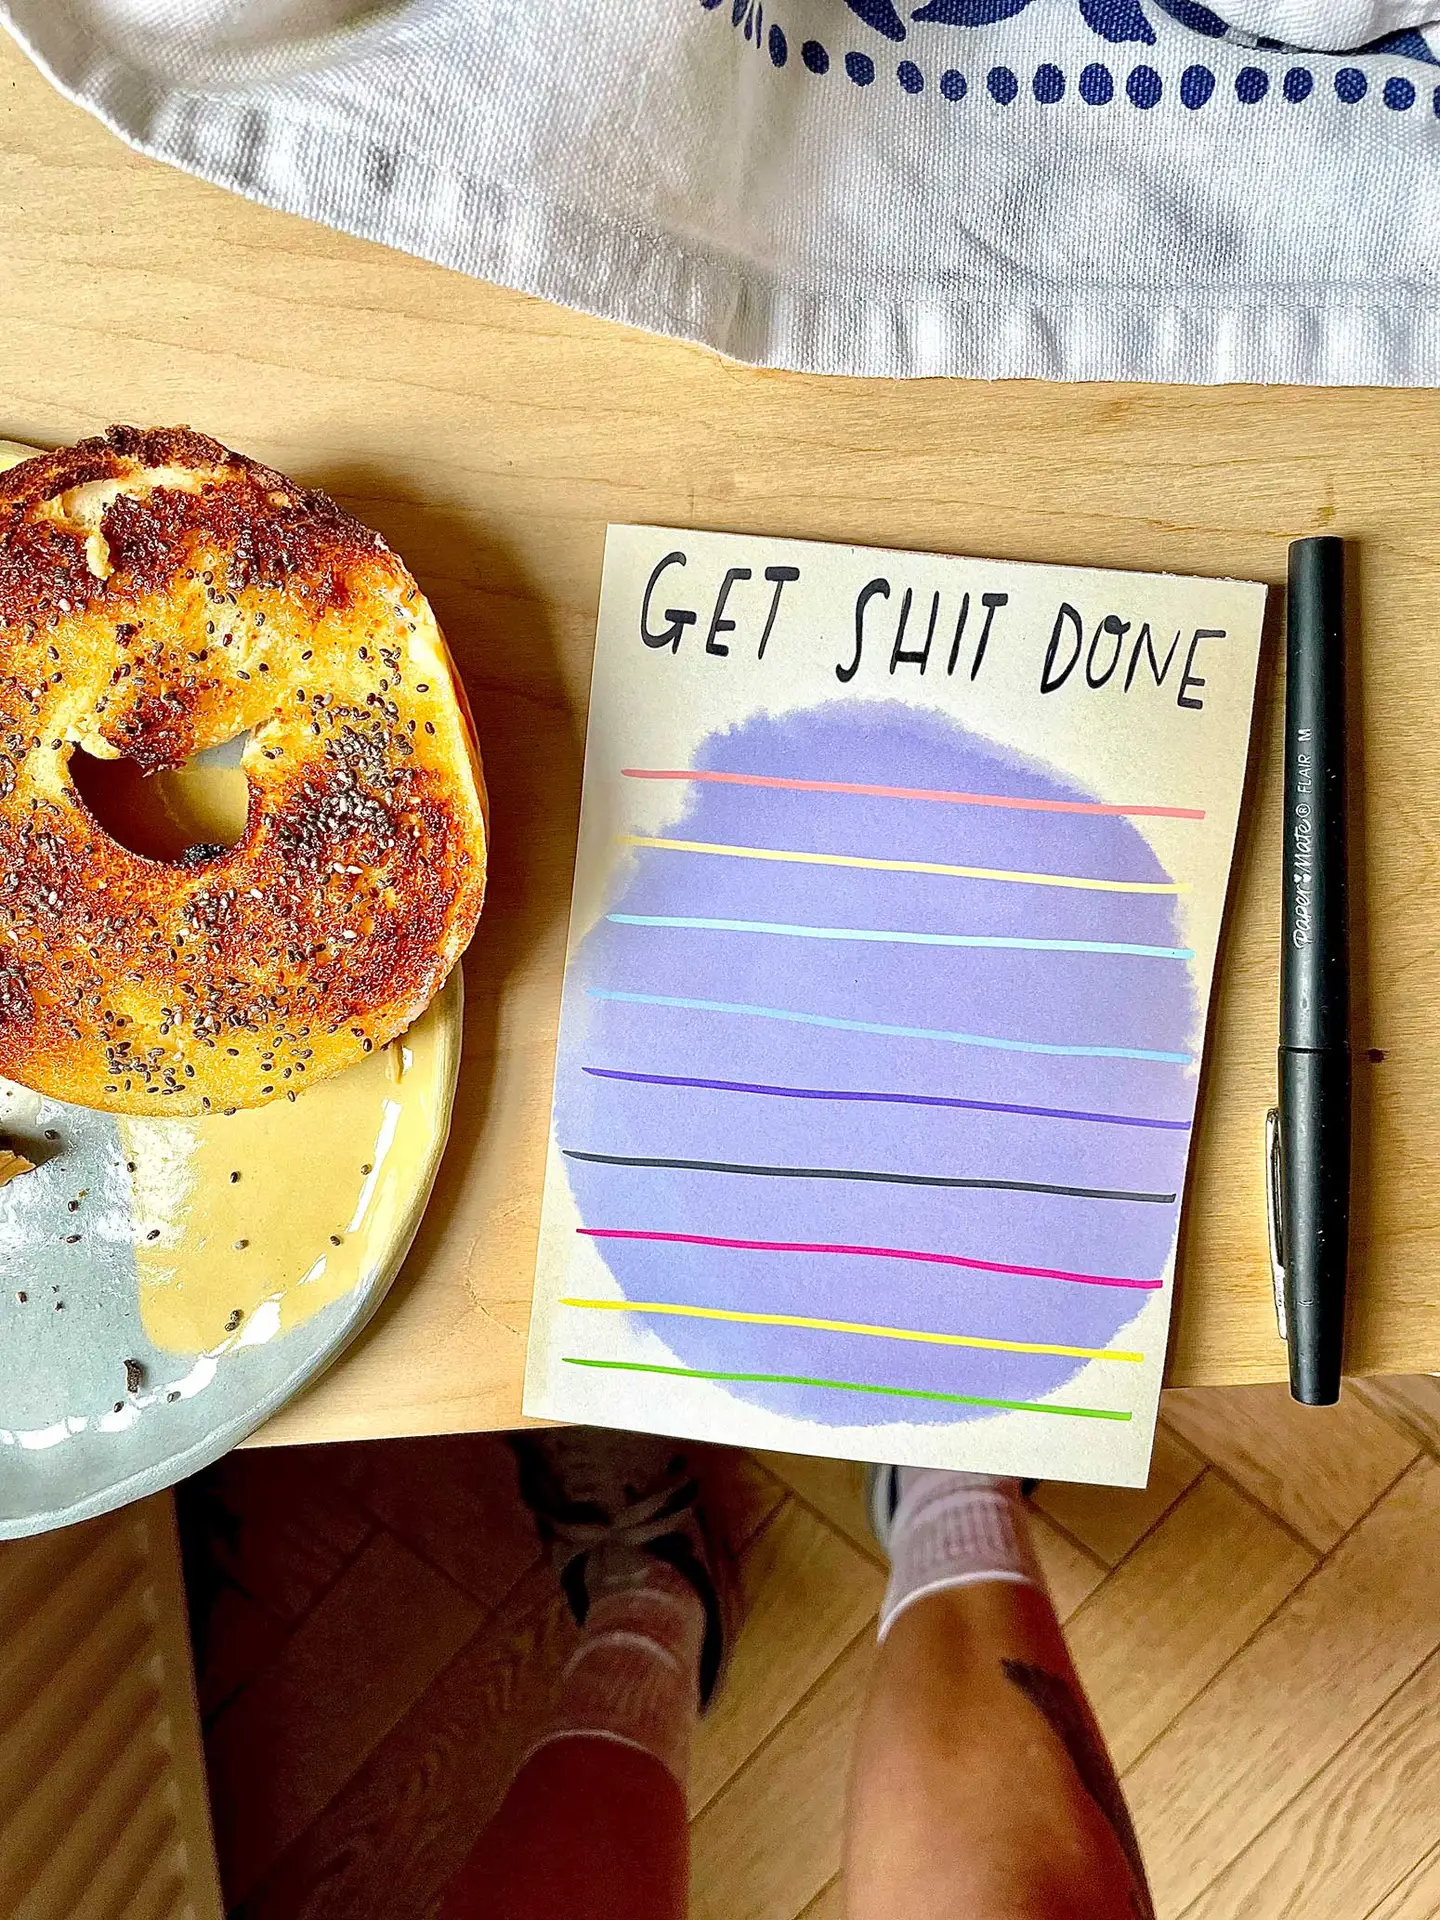 GET SHIT DONE
Paper Mate® FLAIR M